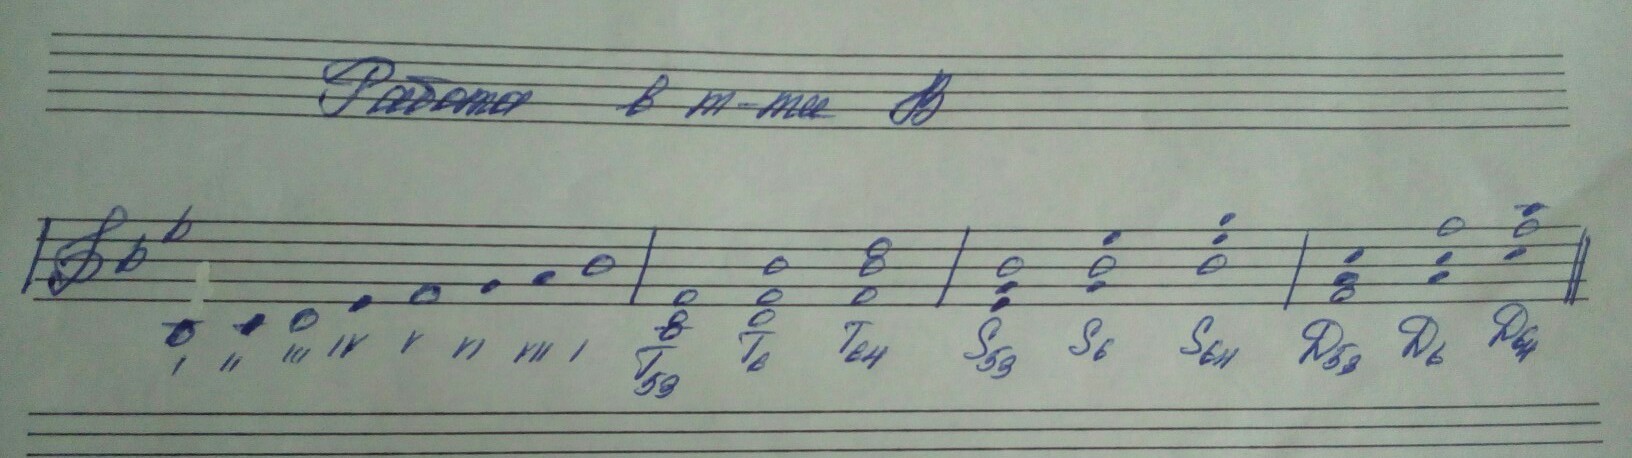 Работа в т-ти B
I II III IV V VI VII I T53 T6 T64 S53 S6 S64 D53 D6 D64